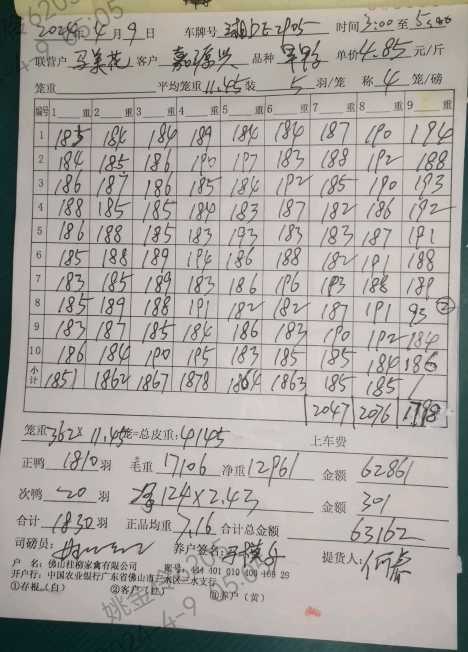 2024年4月9日 车牌号 湘DE2905 时间3:00至5:
联营户 马美花 客户 嘉源兴 品种 单价4.85元/斤
笼重 平均笼重11.45 装 5 羽/笼 称 4 笼/磅
编号 1 重 2 重 3 重 4 重 5 重 6 重 7 重 8 重 9 重
1 185 184 184 189 184 184 187 190 194
2 184 185 186 190 197 183 188 192 188
3 186 187 186 185 184 192 185 190 193
4 188 185 185 184 183 187 182 186 192
5 186 188 185 183 193 183 183 187 191
6 185 188 189 194 186 188 182 191 188
7 183 185 189 183 186 196 193 188 189
8 185 189 188 191 182 182 187 191 93 ②
9 183 187 185 184 186 183 190 192 184
10 186 184 190 195 183 185 185 184 186
小计 1851 1862 1867 1878 1864 1863 185 185
2047 2076 1798
笼重 362×11.45 笼=总皮重:4145 上车费
正鸭 1810 羽 毛重 17106 净重 12961 金额 62861
次鸭 20 羽 净124×2.43 金额 301
合计 1830 羽 正品均重 7.16 合计总金额 63162
司磅员: 养户签名: 提货人:
户 名:佛山桂柳家禽有限公司 账号:444 401 010 400 168 26
开户行:中国农业银行广东省佛山市三水区三水支行
①存根(白) ②客户(红) ③养户(黄)